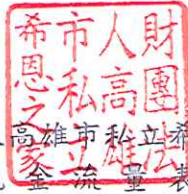 財團法
人高雄
市私立
希恩之家
人高雄市私立希
金流量表